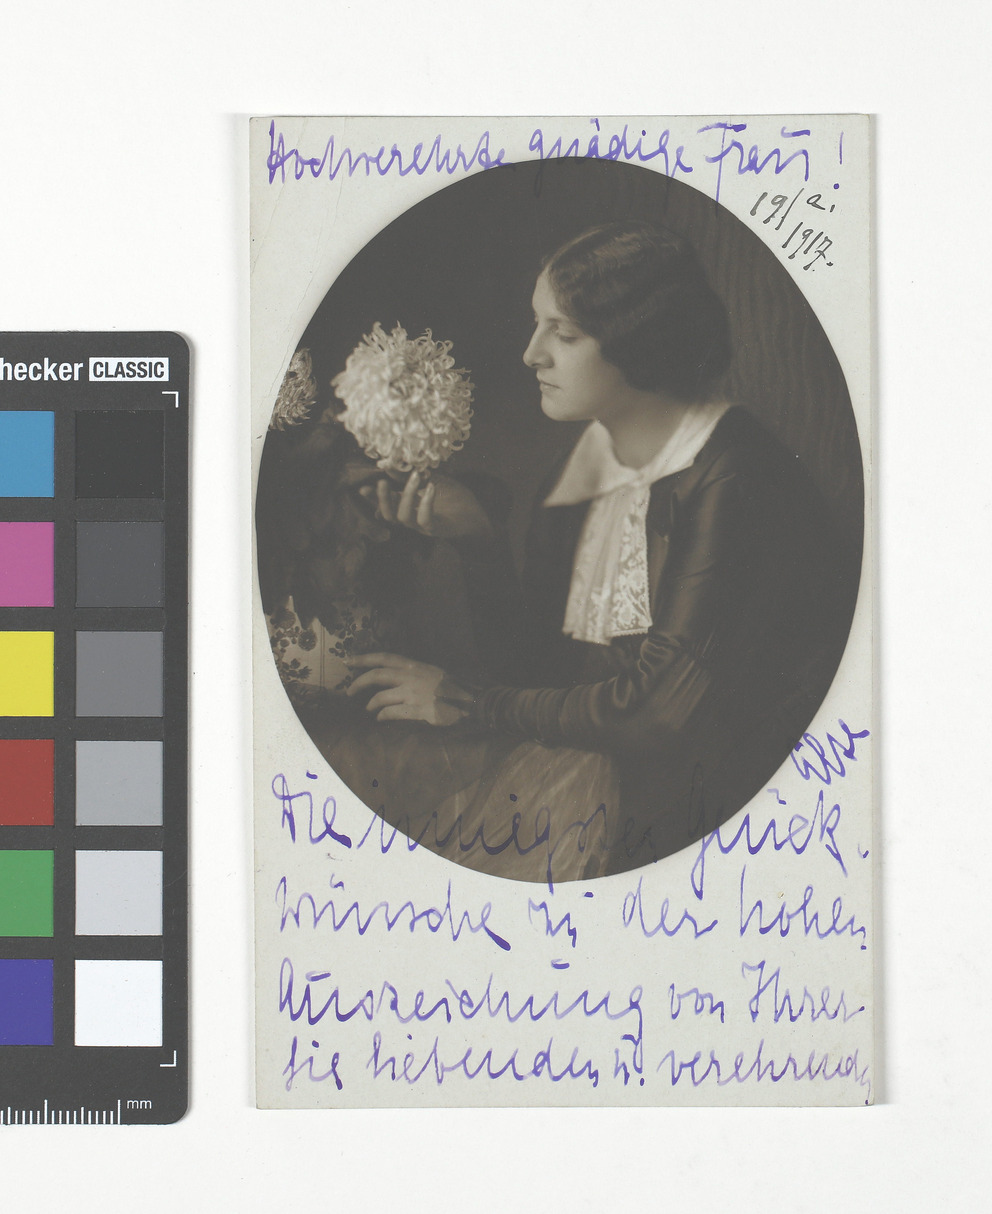 Hochverehrte gnädige Frau!
19/a.
1917.
Die innigsten Glück-
wünsche zu der hohen
Auszeichnung von Ihrer
Sie liebenden u. verehrenden
Ilse
hecker CLASSIC
mm